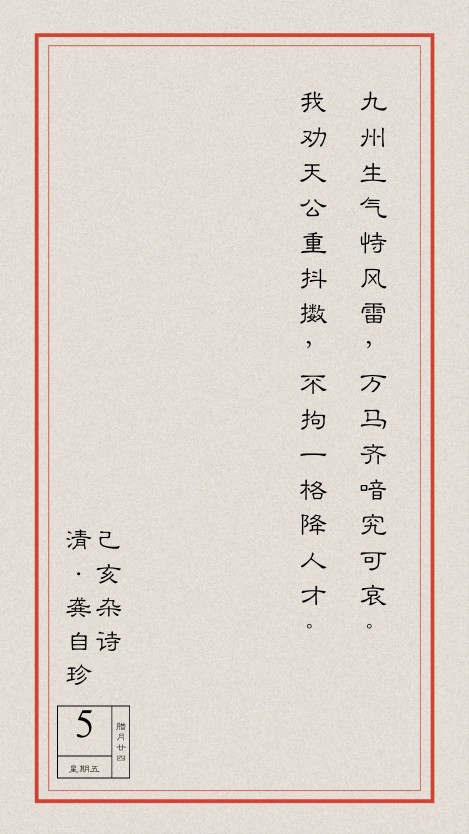 九州生气恃风雷，万马齐喑究可哀。
我劝天公重抖擞，不拘一格降人才。
己亥杂诗
清·龚自珍
5
星期五
腊月廿四